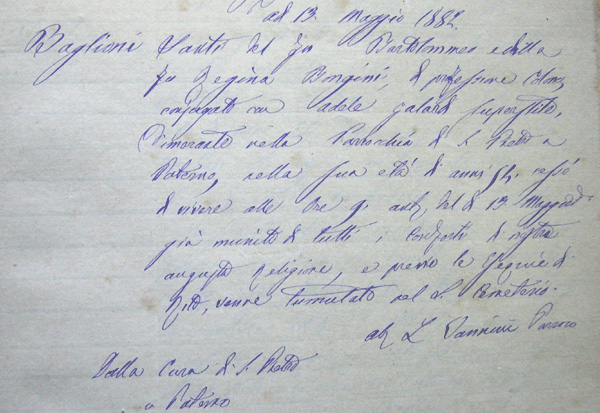 ad 13. Maggio 1882.
Baglioni Santi del fu Bartolommeo e della
fu Regina Borgini, di professione Colono,
conjugato con Adele Galardi superstite,
dimorante nella Parrocchia di S. Pietro a
Paterno, nella sua età di anni 54. cessò
di vivere alle Ore 9 ant. del dì 13 Maggio
già munito di tutti i Conforti di nostra
augusta Religione, e premio le Esequie di
Rito, venne tumulato nel S. Cemeterio.
L. Vannini Parroco
Dalla Cura di S. Pietro
a Paterno